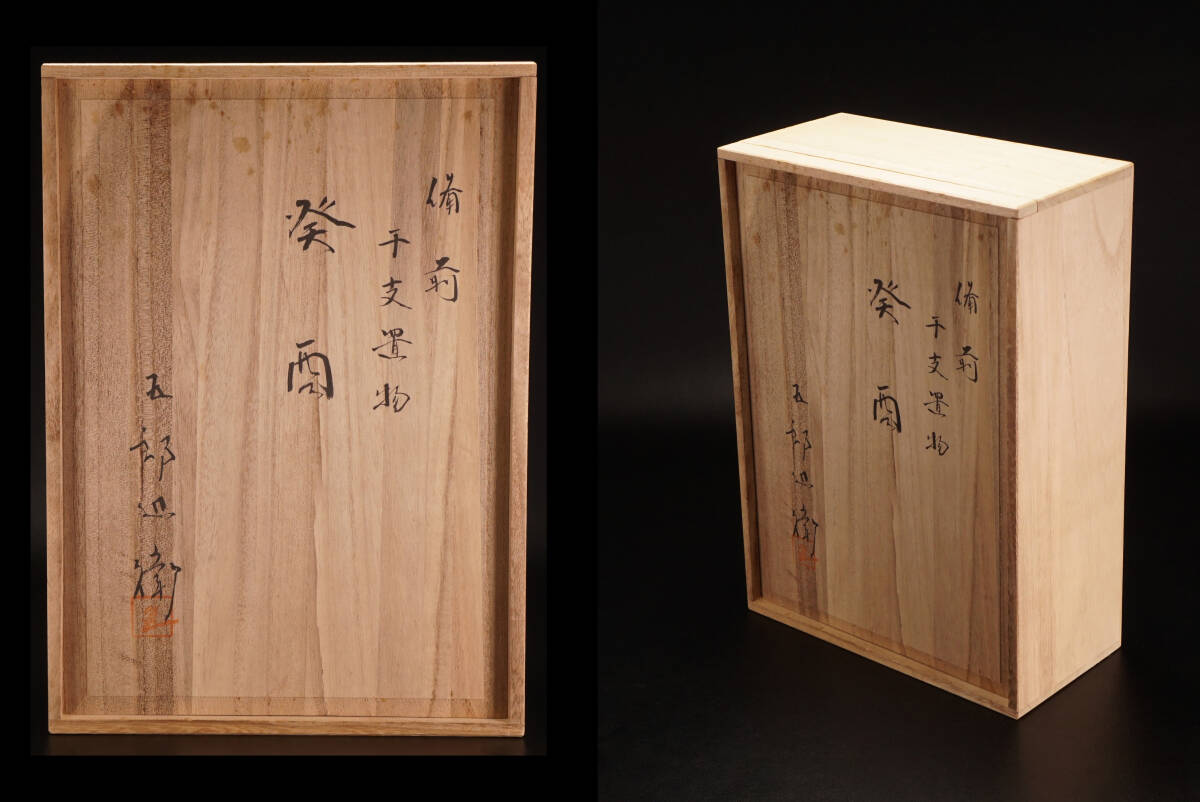 備前
干支置物
癸酉
五郎辺衛
備前
干支置物
癸酉
五郎辺衛